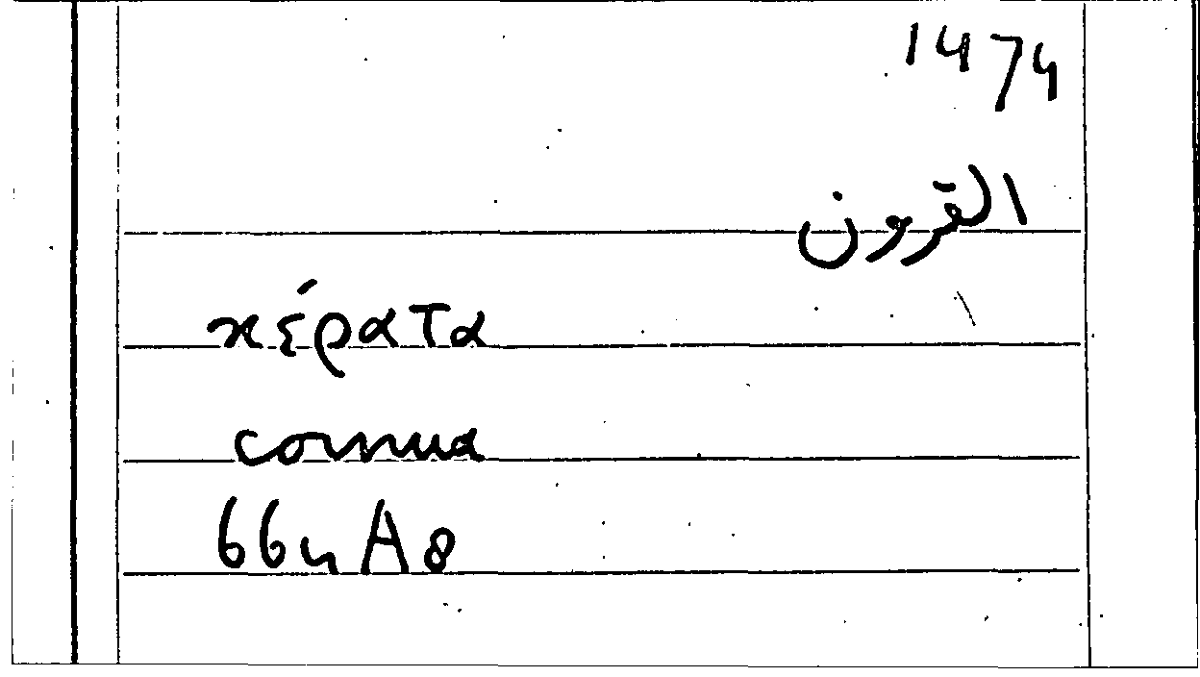 1474
القرون
κέρατα
cornua
664 A8